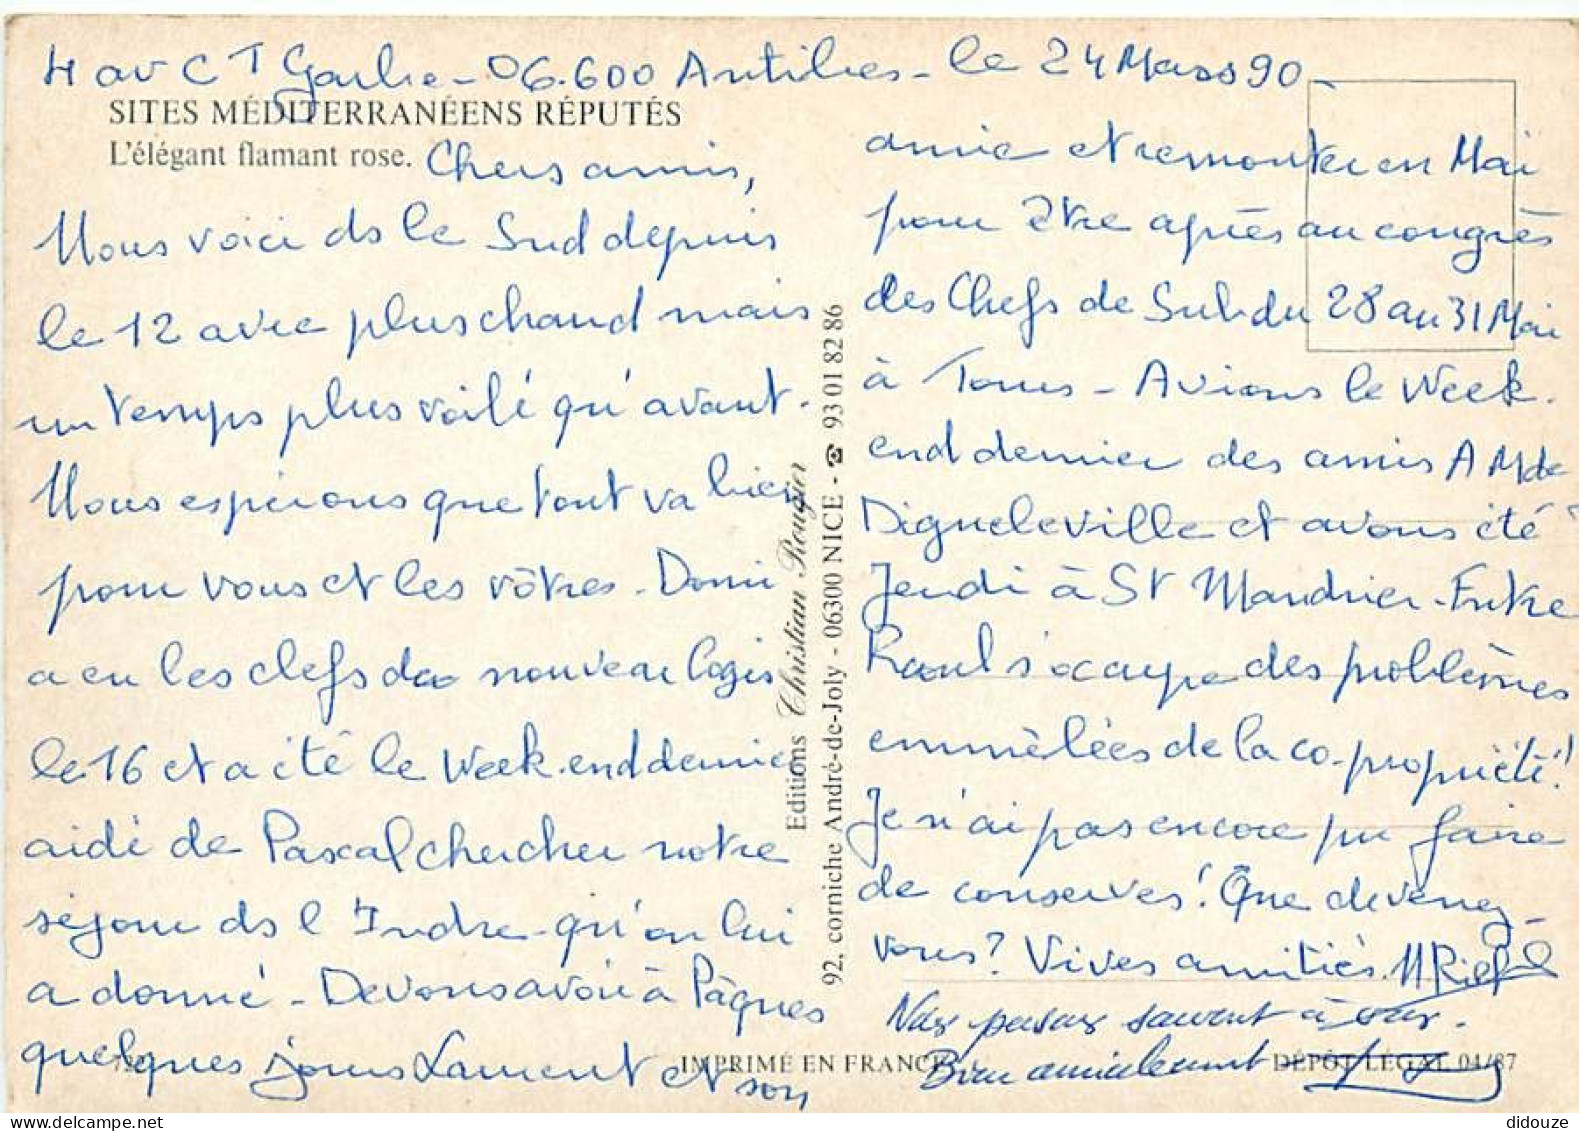 4 av CT Garbe - 06.600 Antibes - le 24 Mars 90 -
SITES MÉDITERRANÉENS RÉPUTÉS
L'élégant flamant rose.
Chers amis,
Nous voici ds le Sud depuis
le 12 avec plus chaud mais
un temps plus voilé qu'avant.
Nous espérons que tout va bien
pour vous et les vôtres - Domi
a eu les clefs du nouveau logis
le 16 et a été le Week.end dernier
aidé de Pascal chercher notre
séjour ds l'Indre qu'on lui
a donné - Devons avoir à Pâques
quelques jours Laurent et son
amie et remonter en Mai
pour être après au congrès
des Chefs de Sub du 28 au 31 Mai
à Tours - Avions le Week.
end dernier des amis AM de
Digueleville et avons été
Jeudi à St Mandrier - Entre
Raoul s'occupe des problèmes
emmêlées de la co-propriété!
Je n'ai pas encore pu faire
de conserves! Que devenez-
vous? Vives amitiés.
Nous pensons souvent à vous.
Bien amicalement
Editions Christian Rougier
92, corniche André-de-Joly - 06300 NICE - ☎ 93 01 82 86
IMPRIMÉ EN FRANCE
DÉPÔT LÉGAL 04/87
didouze